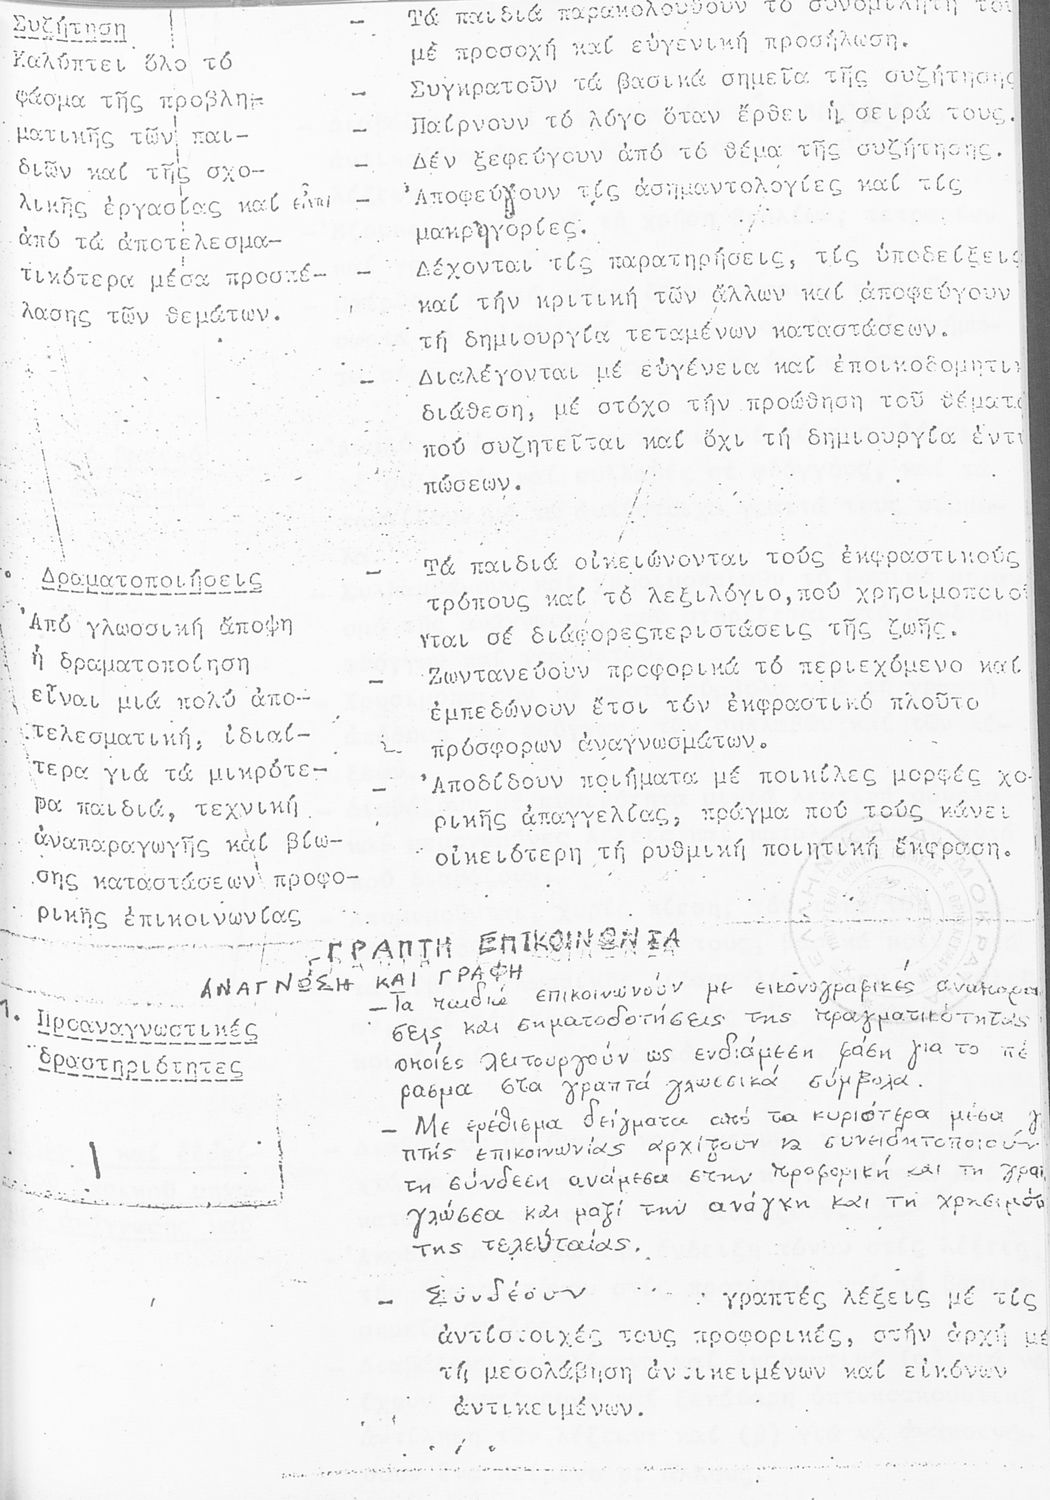 Συζήτηση
Καλύπτει ὅλο τό
φάσμα τῆς προβλη-
ματικῆς τῶν παι-
διῶν καί τῆς σχο-
λικῆς ἐργασίας καί εἶναι
ἀπό τά ἀποτελεσμα-
τικότερα μέσα προσπέ-
λασης τῶν θεμάτων.
– Τά παιδιά παρακολουθοῦν τό συνομιλητή του
μέ προσοχή καί εὐγενική προσήλωση.
– Συγκρατοῦν τά βασικά σημεῖα τῆς συζήτησης
– Παίρνουν τό λόγο ὅταν ἔρθει ἡ σειρά τους.
– Δέν ξεφεύγουν ἀπό τό θέμα τῆς συζήτησης.
– Ἀποφεύγουν τίς ἀσημαντολογίες καί τίς
μακρηγορίες.
– Δέχονται τίς παρατηρήσεις, τίς ὑποδείξεις
καί τήν κριτική τῶν ἄλλων καί ἀποφεύγουν
τή δημιουργία τεταμένων καταστάσεων.
– Διαλέγονται μέ εὐγένεια καί ἐποικοδομητι
διάθεση, μέ στόχο τήν προώθηση τοῦ θέματο
πού συζητεῖται καί ὄχι τή δημιουργία ἐντυ
πώσεων.
Δραματοποιήσεις
Ἀπό γλωσσική ἄποψη
ἡ δραματοποίηση
εἶναι μιά πολύ ἀπο-
τελεσματική, ἰδιαί-
τερα γιά τά μικρότε-
ρα παιδιά, τεχνική
ἀναπαραγωγῆς καί βίω-
σης καταστάσεων προφο-
ρικῆς ἐπικοινωνίας
– Τά παιδιά οἰκειώνονται τούς ἐκφραστικούς
τρόπους καί τό λεξιλόγιο,πού χρησιμοποιοῦ
νται σέ διάφορεςπεριστάσεις τῆς ζωῆς.
– Ζωντανεύουν προφορικά τό περιεχόμενο καί
ἐμπεδώνουν ἔτσι τόν ἐκφραστικό πλοῦτο
πρόσφορων ἀναγνωσμάτων.
– Ἀποδίδουν ποιήματα μέ ποικίλες μορφές χο-
ρικῆς ἀπαγγελίας, πράγμα πού τούς κάνει
οἰκειότερη τή ρυθμική ποιητική ἔκφραση.
ΓΡΑΠΤΗ ΕΠΙΚΟΙΝΩΝΙΑ
ΑΝΑΓΝΩΣΗ ΚΑΙ ΓΡΑΦΗ
1. Προαναγνωστικές
δραστηριότητες
– Τα παιδιά επικοινωνούν με εικονογραφικές αναπαρα
σεις και σηματοδοτήσεις της πραγματικότητας
οποίες λειτουργούν ως ενδιάμεση φάση για το πέ
ρασμα στα γραπτά γλωσσικά σύμβολα.
– Με ερέθισμα δείγματα από τα κυριότερα μέσα γ
πτής επικοινωνίας αρχίζουν να συνειδητοποιούν
τη σύνδεση ανάμεσα στην προφορική και τη γραπ
γλώσσα και μαζί την ανάγκη και τη χρησιμότ
της τελευταίας.
– Συνδέουν γραπτές λέξεις μέ τίς
ἀντίστοιχές τους προφορικές, στήν ἀρχή μέ
τή μεσολάβηση ἀντικειμένων καί εἰκόνων
ἀντικειμένων.